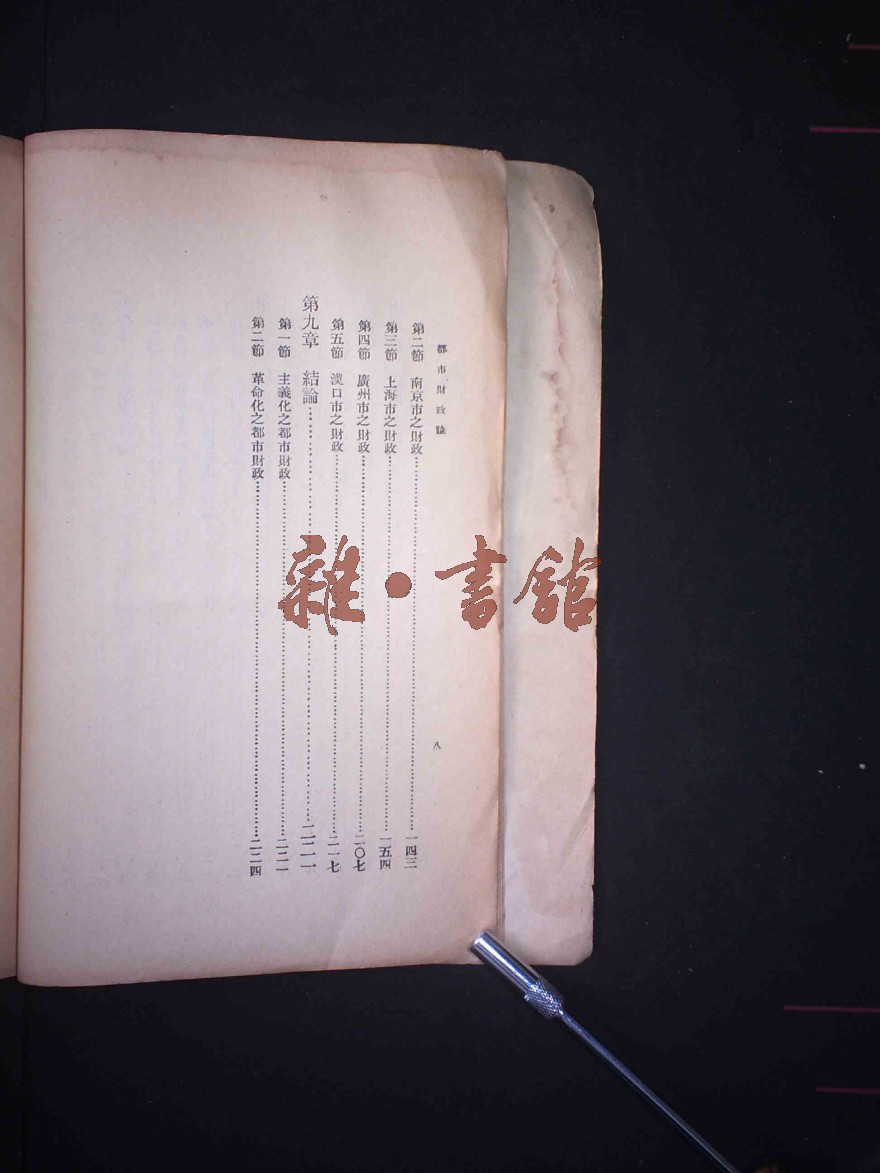 都市財政論
八
第二節 南京市之財政……一四三
第三節 上海市之財政……一五四
第四節 廣州市之財政……二〇七
第五節 漢口市之財政……二一七
第九章 結論……二二一
第一節 主義化之都市財政……二二一
第二節 革命化之都市財政……二二四
雜·書館